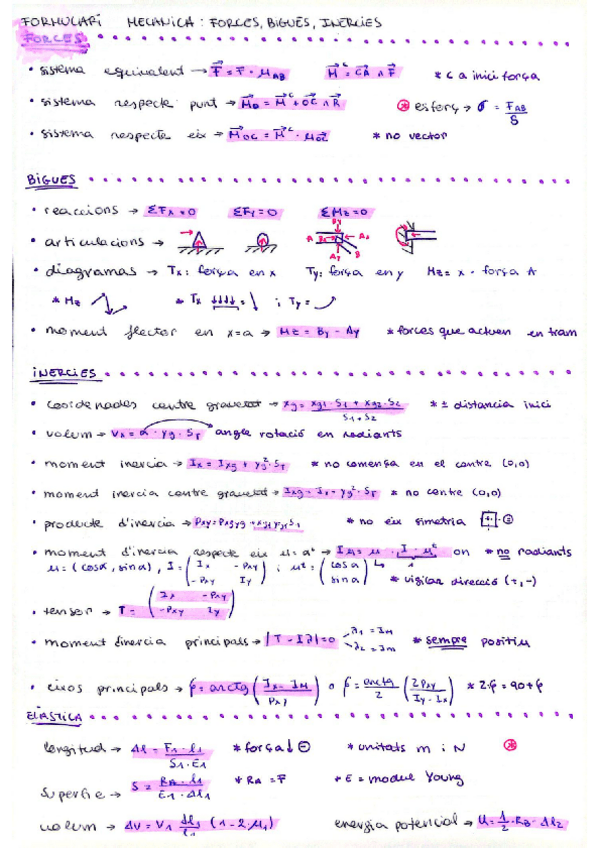 FORMULARI MECANICA: FORCES, BIGUES, INERCIES
FORCES
• sistema equivalent → F = F · μAB M = M^c = CA ∧ F * C a inici força
• sistema respecte punt → Mo = M^c + OC ∧ R * esforç → σ = FAB / S
• sistema respecte eix → MOC = M^c · μOC * no vector
BIGUES
• reaccions → ΣFx = 0 ΣFy = 0 ΣMz = 0
• articulacions →
• diagramas → Tx: força en x Ty: força en y Mz = x · força A
* Mz * Tx ↓↓↓↓ = ; Ty =
• moment flector en x=a → Mz = By - Ay * forces que actuen en tram
INERCIES
• coordenades centre gravetat → xg = (xg1 · S1 + xg2 · S2) / (S1 + S2) * ± distancia inici
• volum → Vx = α · yg · Sr angle rotació en radiants
• moment inercia → Ix = Ixg + yg² · Sr * no comença en el centre (0,0)
• moment inercia centre gravetat → Ixg = Ix - yg² · Sr * no centre (0,0)
• producte d'inercia → Pxy = Pxgyg + xg1 yg1 S1 * no eix simetria
• moment d'inercia respecte eix μ = a° → Iμ = μ · I · μ^t on * no radiants
μ = (cosα, sinα), I = (Ix -Pxy -Pxy Iy) ; μ^t = (cosα sinα) * vigilar direcció (+,-)
• tensor → T = (Ix -Pxy -Pxy Iy)
• moment d'inercia principals → |T - Iλ| = 0 λ1 = IM λ2 = Im * sempre positiu
• eixos principals → φ = arctg((Ix - IM) / Pxy) o φ = arctg / 2 (2Pxy / (Iy - Ix)) * 2·φ = 90+φ
ELÀSTICA
longitud → Δl = F1 · l1 / S1 · E1 * força ↓ ⊖ * unitats m i N
superfie → S = RA · l1 / E1 · Δl1 * RA = F * E = modul Young
volum → ΔV = V1 Δl1 / l1 (1 - 2·μ1) energia potencial → U = 1/2 · RB · Δl2